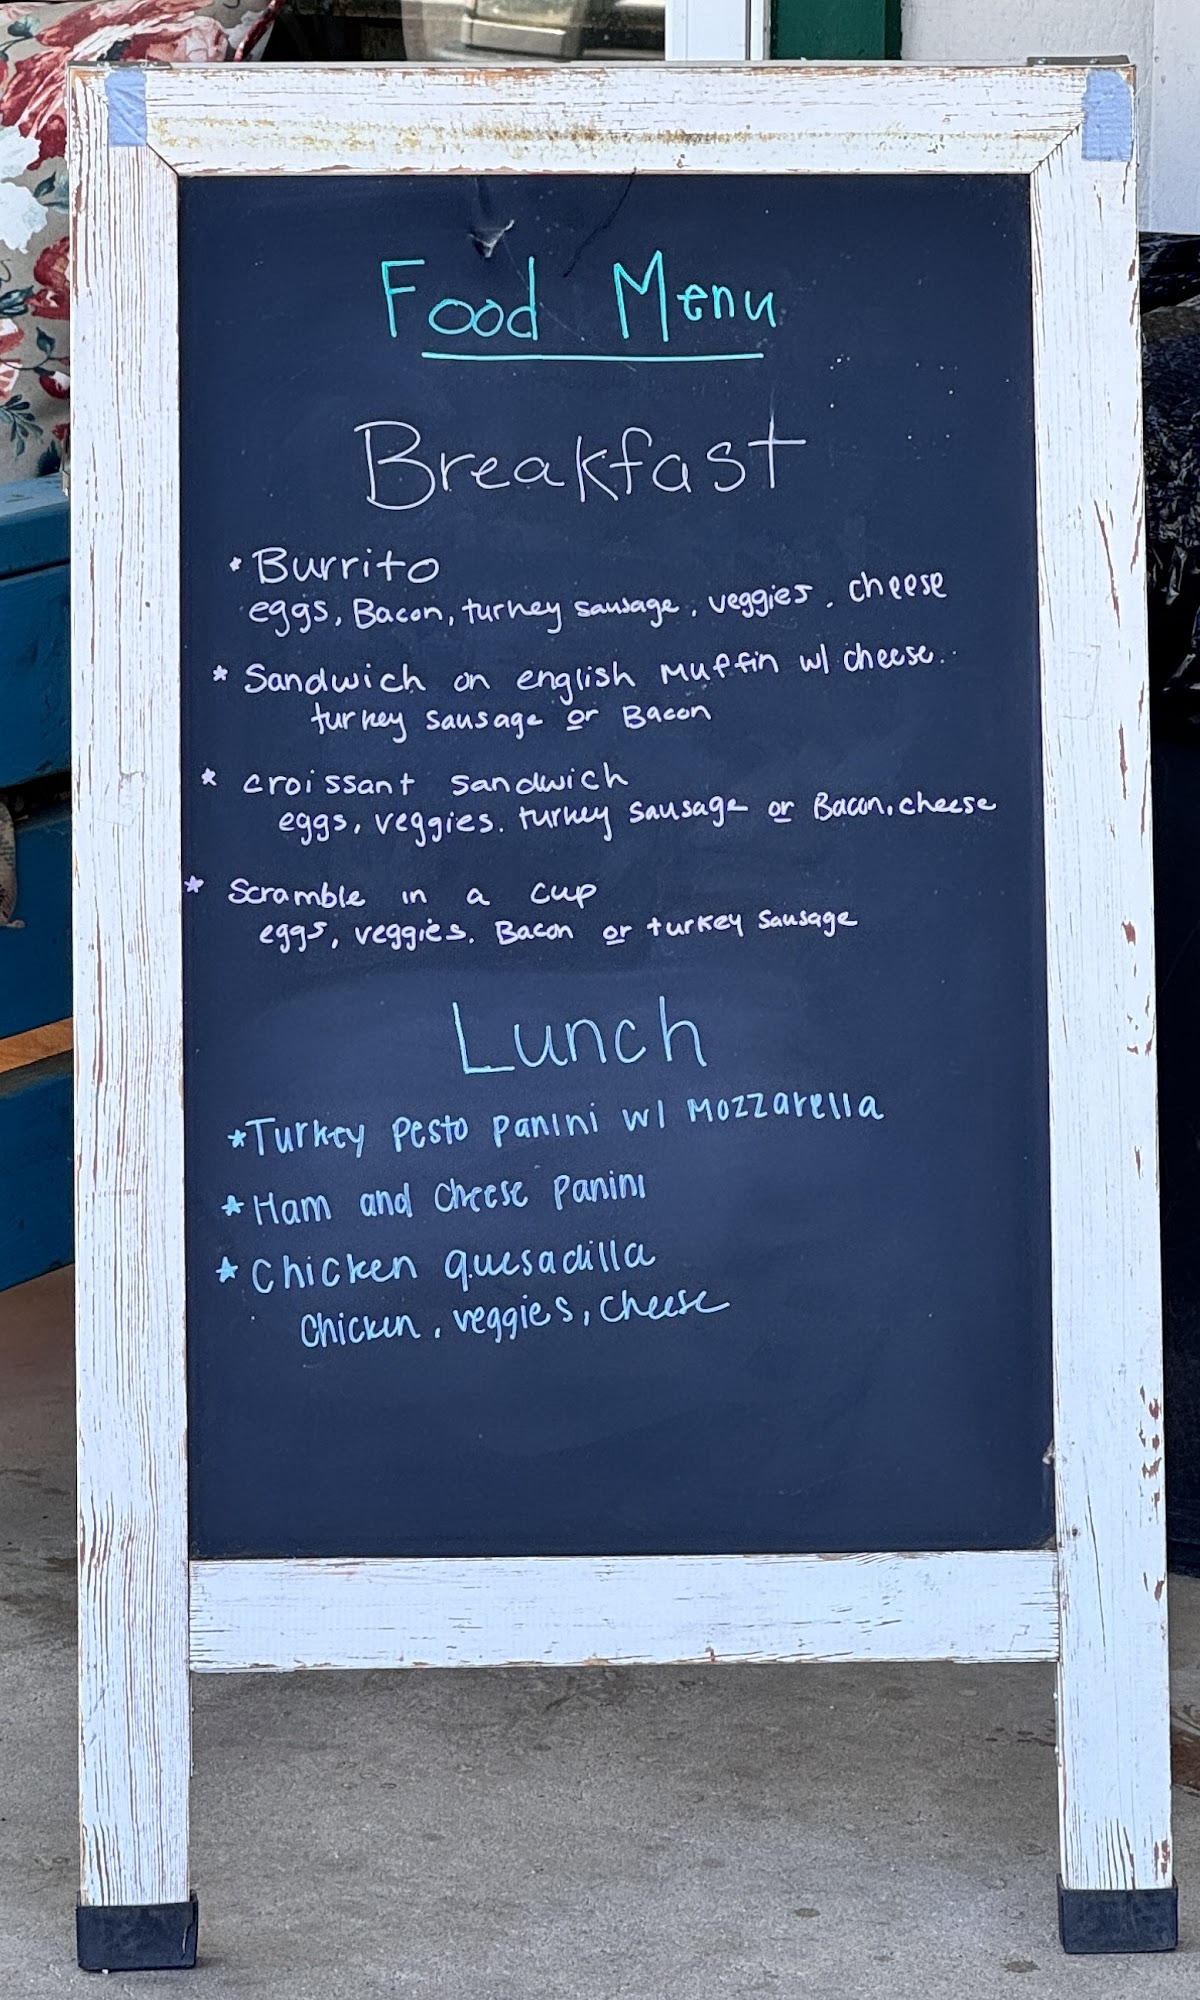 Food Menu
Breakfast
* Burrito
eggs, Bacon, turkey sausage, veggies, cheese
* Sandwich on english Muffin w/ cheese.
turkey sausage or Bacon
* croissant sandwich
eggs, veggies, turkey sausage or Bacon, cheese
* Scramble in a cup
eggs, veggies, Bacon or turkey sausage
Lunch
* Turkey Pesto Panini w/ Mozzarella
* Ham and Cheese Panini
* Chicken quesadilla
Chicken, veggies, cheese